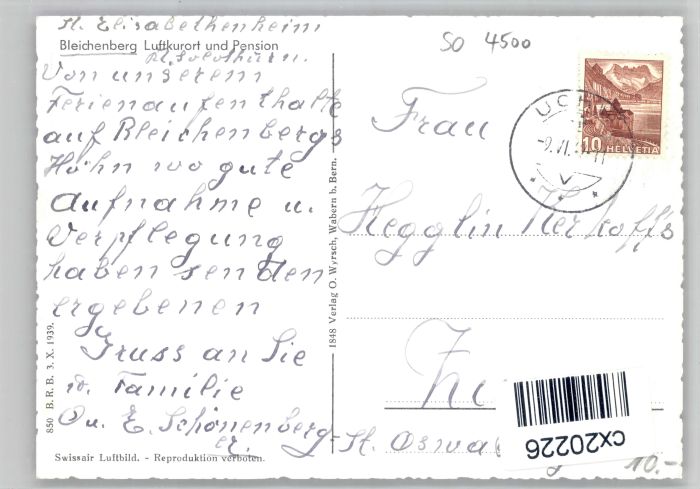 St. Elisabethenheim
Bleichenberg Luftkurort und Pension
Kt. Solothurn.
Von unserem
Ferienaufenthalte
auf Bleichenbergs
Höhn wo gute
Aufnahme u.
Verpflegung
haben senden
ergebenen
Gruss an Sie
w. Familie
O u. E. Schönenberg-
er.
850 B.R.B. 3. X. 1939.
Swissair Luftbild. - Reproduktion verboten.
1848 Verlag O. Wyrsch, Wabern b. Bern.
SO 4500
10 HELVETIA
Frau
Hegglin Kerkoffs
St. Oswa
cx20226
10.-